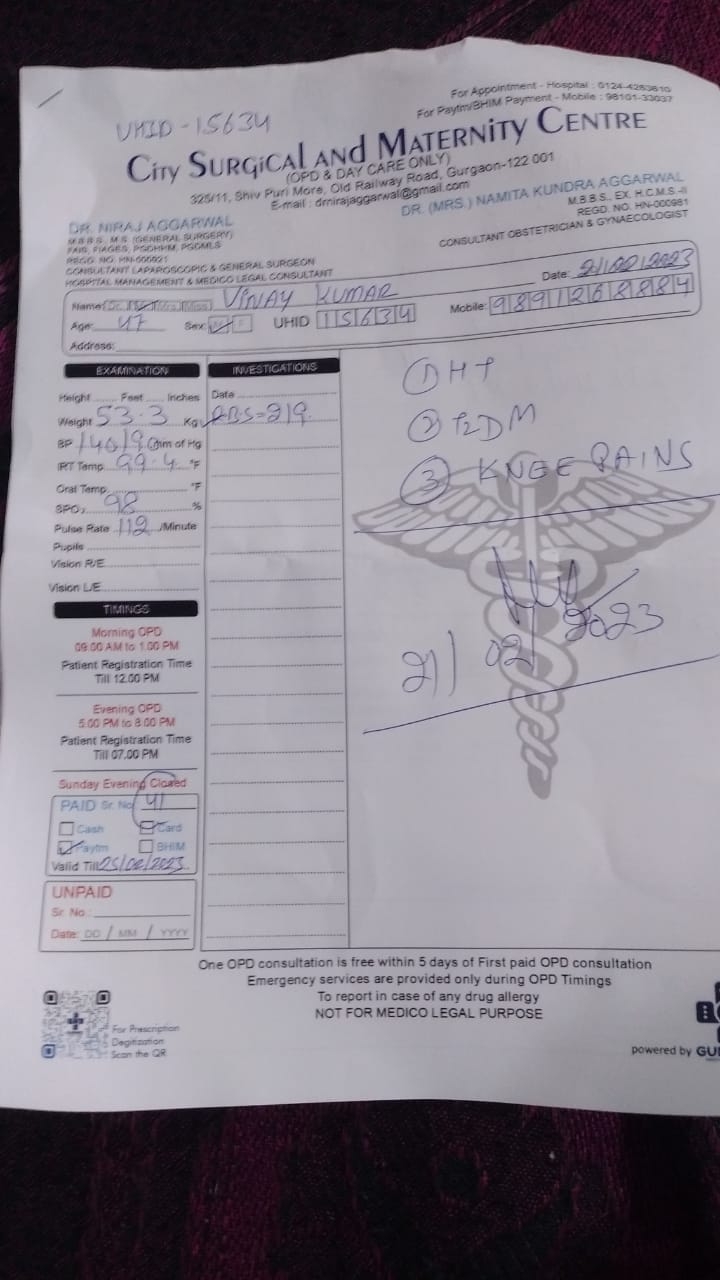 For Appointment - Hospital : 0124-4283810
For Paytm/BHIM Payment - Mobile : 98101-33037
UHID - 15634
CITY SURGICAL AND MATERNITY CENTRE
(OPD & DAY CARE ONLY)
325/11, Shiv Puri More, Old Railway Road, Gurgaon-122 001
E-mail : drnirajaggarwal@gmail.com
DR. NIRAJ AGGARWAL
M.B.B.S., M.S. (GENERAL SURGERY)
FAIS, FIAGES, PGDHHM, PGDMLS
REGD. NO. HN-000921
CONSULTANT LAPAROSCOPIC & GENERAL SURGEON
HOSPITAL MANAGEMENT & MEDICO LEGAL CONSULTANT
DR. (MRS.) NAMITA KUNDRA AGGARWAL
M.B.B.S., EX. H.C.M.S.-II
REGD. NO. HN-000981
CONSULTANT OBSTETRICIAN & GYNAECOLOGIST
Date: 21/02/2023
Name: Dr. Mr. Mrs. Miss VINAY KUMAR
Age: 47 Sex: M F UHID 15634 Mobile: 9891268884
Address:
EXAMINATION
Height Feet Inches
Weight 53.3 Kg
BP 140/90 mm of Hg
IRT Temp. 99.4 °F
Oral Temp. °F
SPO2 98 %
Pulse Rate 112 /Minute
Pupils
Vision R/E
Vision L/E
INVESTIGATIONS
Date
RBS=219
① HT
② T2DM
③ KNEE PAINS
21/02/2023
TIMINGS
Morning OPD
09:00 AM to 1:00 PM
Patient Registration Time
Till 12.00 PM
Evening OPD
5:00 PM to 8:00 PM
Patient Registration Time
Till 07.00 PM
Sunday Evening Closed
PAID Sr. No. 41
Cash Card
Paytm BHIM
Valid Till 25/02/2023
UNPAID
Sr. No.:
Date: DD / MM / YYYY
One OPD consultation is free within 5 days of First paid OPD consultation
Emergency services are provided only during OPD Timings
To report in case of any drug allergy
NOT FOR MEDICO LEGAL PURPOSE
For Prescription
Degitization
Scan the QR
powered by